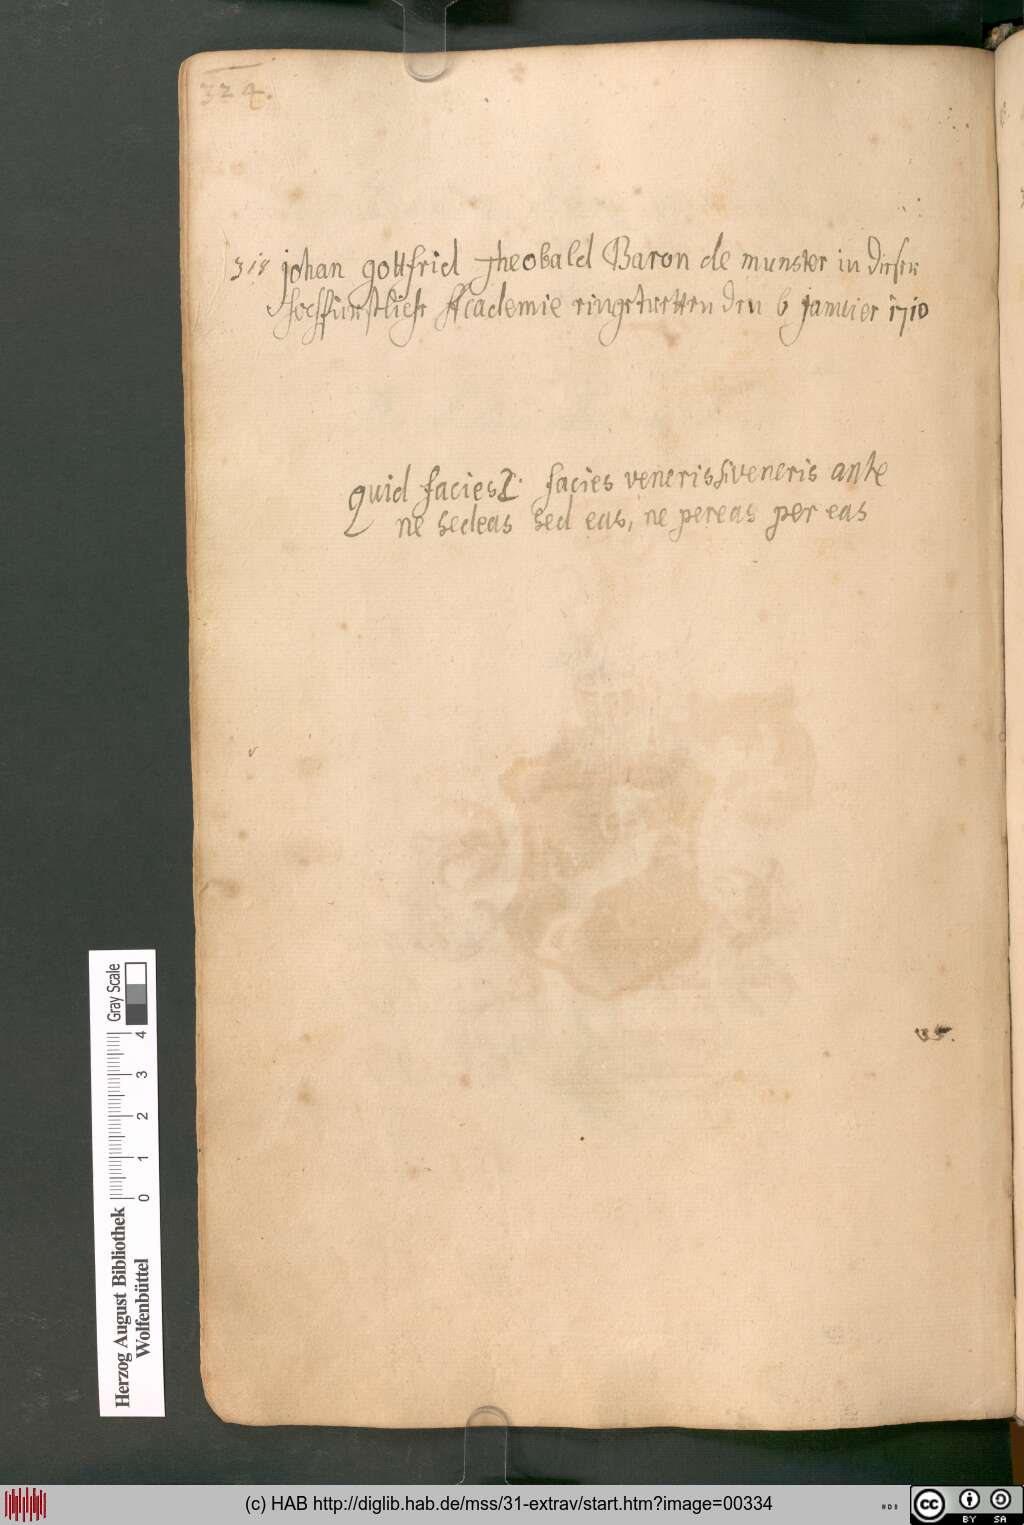 324.
318 johan gottfrid Theobald Baron de munster in dieser
hochfürstliche Academie eingetretten den 6 januier 1710
Quid facies? facies veneris si veneris ante
ne sedeas sed eas, ne pereas per eas
35.
Gray Scale
0 1 2 3 4
Herzog August Bibliothek
Wolfenbüttel
(c) HAB http://diglib.hab.de/mss/31-extrav/start.htm?image=00334
cc BY SA